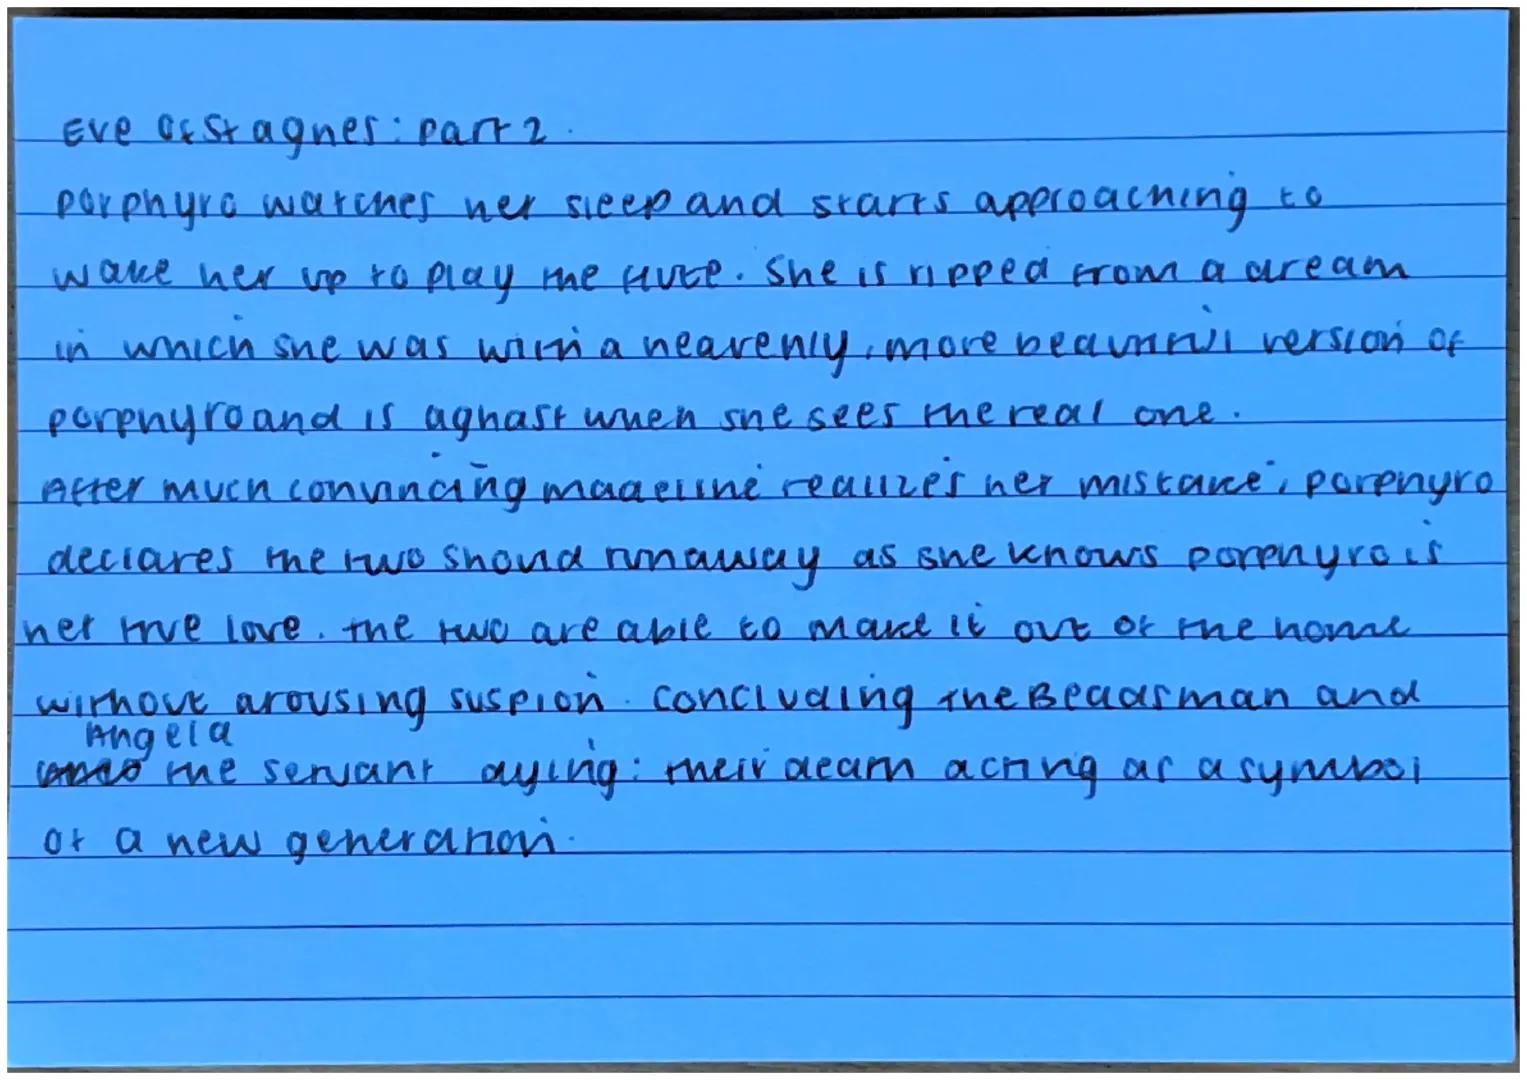 Eve of St agnes: part 2.
porphyro watches her sleep and starts approaching to
wake her up to play the flute. She is ripped from a dream
in which she was with a heavenly, more beautiful version of
porphyro and is aghast when she sees the real one.
After much convincing madeline realizes her mistake, porphyro
declares the two should runaway as she knows porphyro is
her true love. the two are able to make it out of the home
without arousing suspion. Concluding the Beadsman and
Angela
the servant dying: their death acting as a symbol
of a new generation.